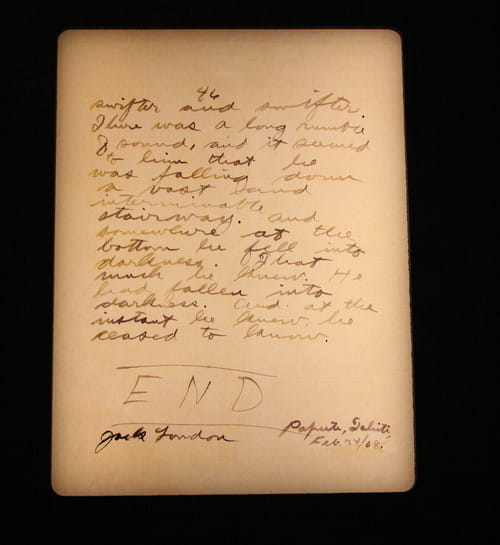 46
swifter and swifter.
There was a long rumble
of sound, and it seemed
to him that he
was falling down
a vast and
interminable
stairway. And
somewhere at the
bottom he fell into
darkness. That
much he knew. He
had fallen into
darkness. And at the
instant he knew, he
ceased to know.
END
Jack London
Papeete, Tahiti,
Feb. 24/08.